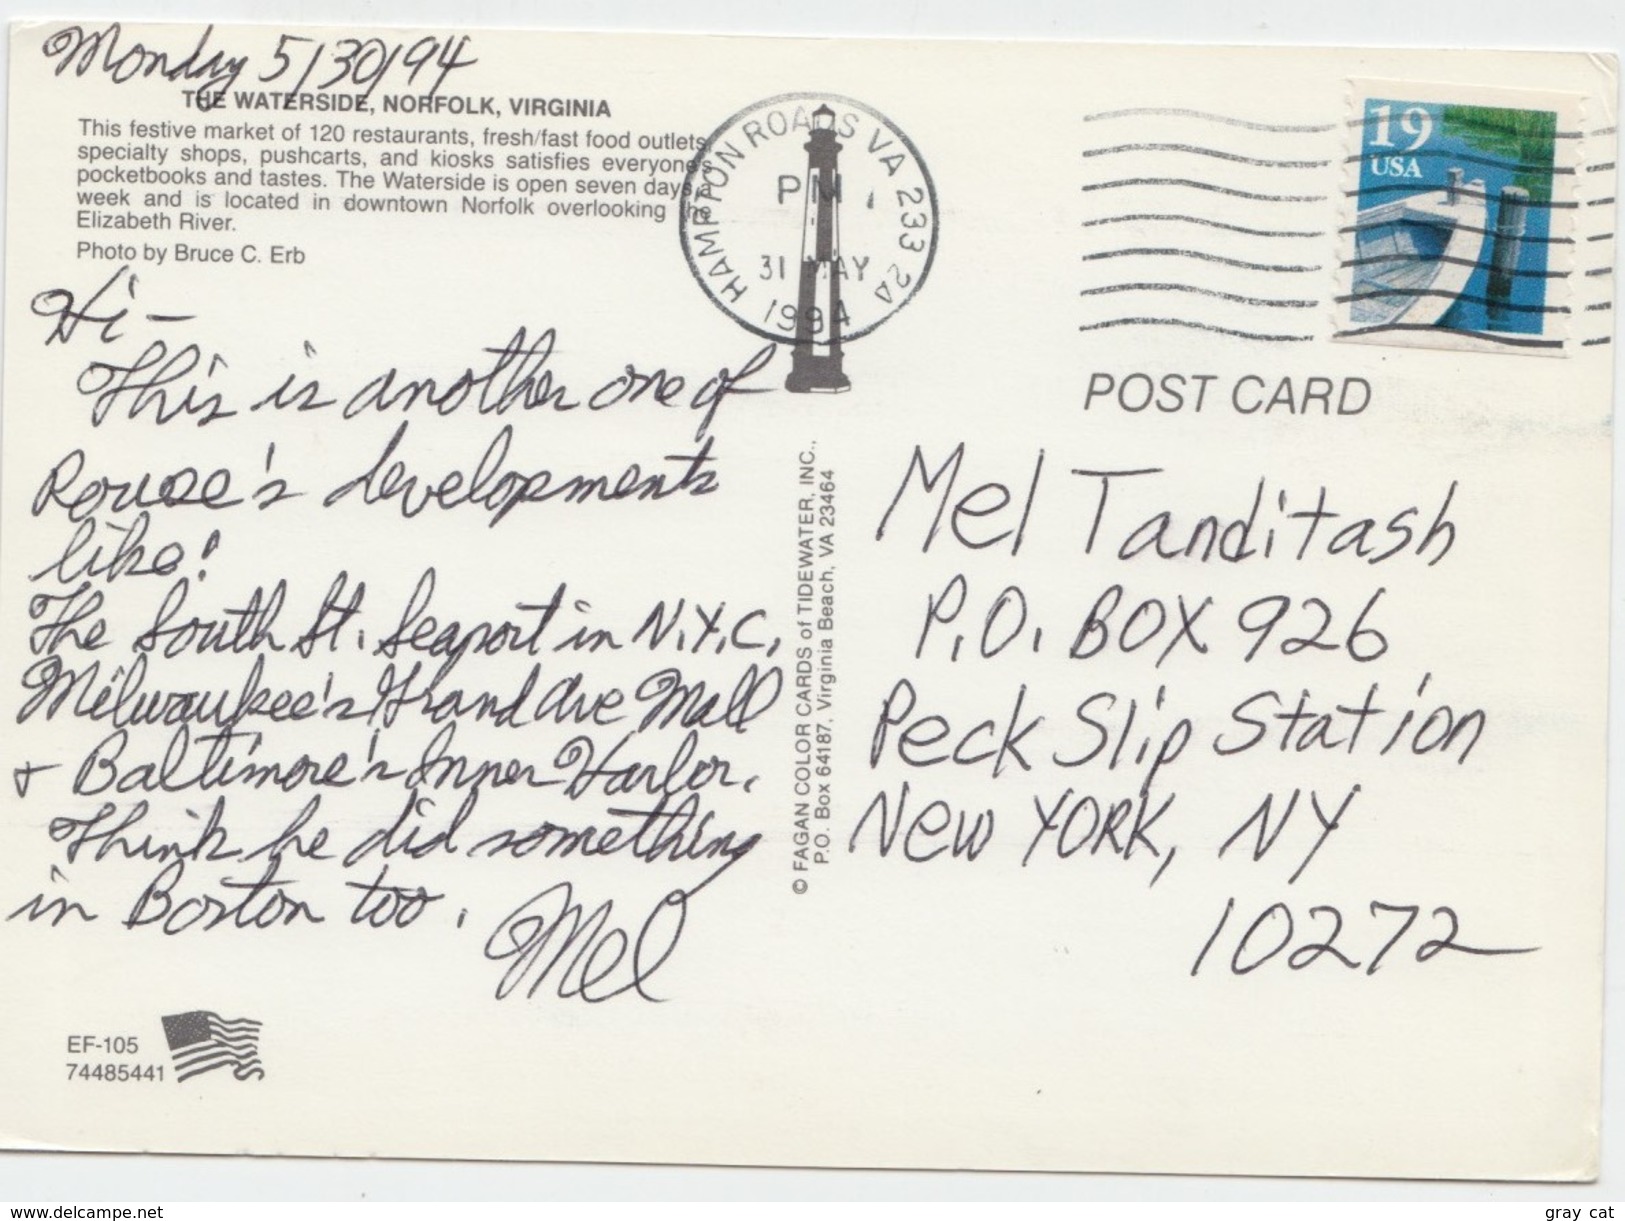 Monday 5/30/94
THE WATERSIDE, NORFOLK, VIRGINIA
This festive market of 120 restaurants, fresh/fast food outlets,
specialty shops, pushcarts, and kiosks satisfies everyone's
pocketbooks and tastes. The Waterside is open seven days a
week and is located in downtown Norfolk overlooking the
Elizabeth River.
Photo by Bruce C. Erb
Hi-
This is another one of
Rouse's developments
like:
The South St. Seaport in N.Y.C.
Milwaukee's Grand Ave Mall
+ Baltimore's Inner Harbor.
Think he did something
in Boston too.
Mel
EF-105
74485441
© FAGAN COLOR CARDS of TIDEWATER, INC.,
P.O. Box 64187, Virginia Beach, VA 23464
HAMPTON ROADS VA 233 2A
PM
31 MAY
1994
19
USA
POST CARD
Mel Tanditash
P.O. BOX 926
Peck Slip Station
New YORK, NY
10272
www.delcampe.net
gray cat